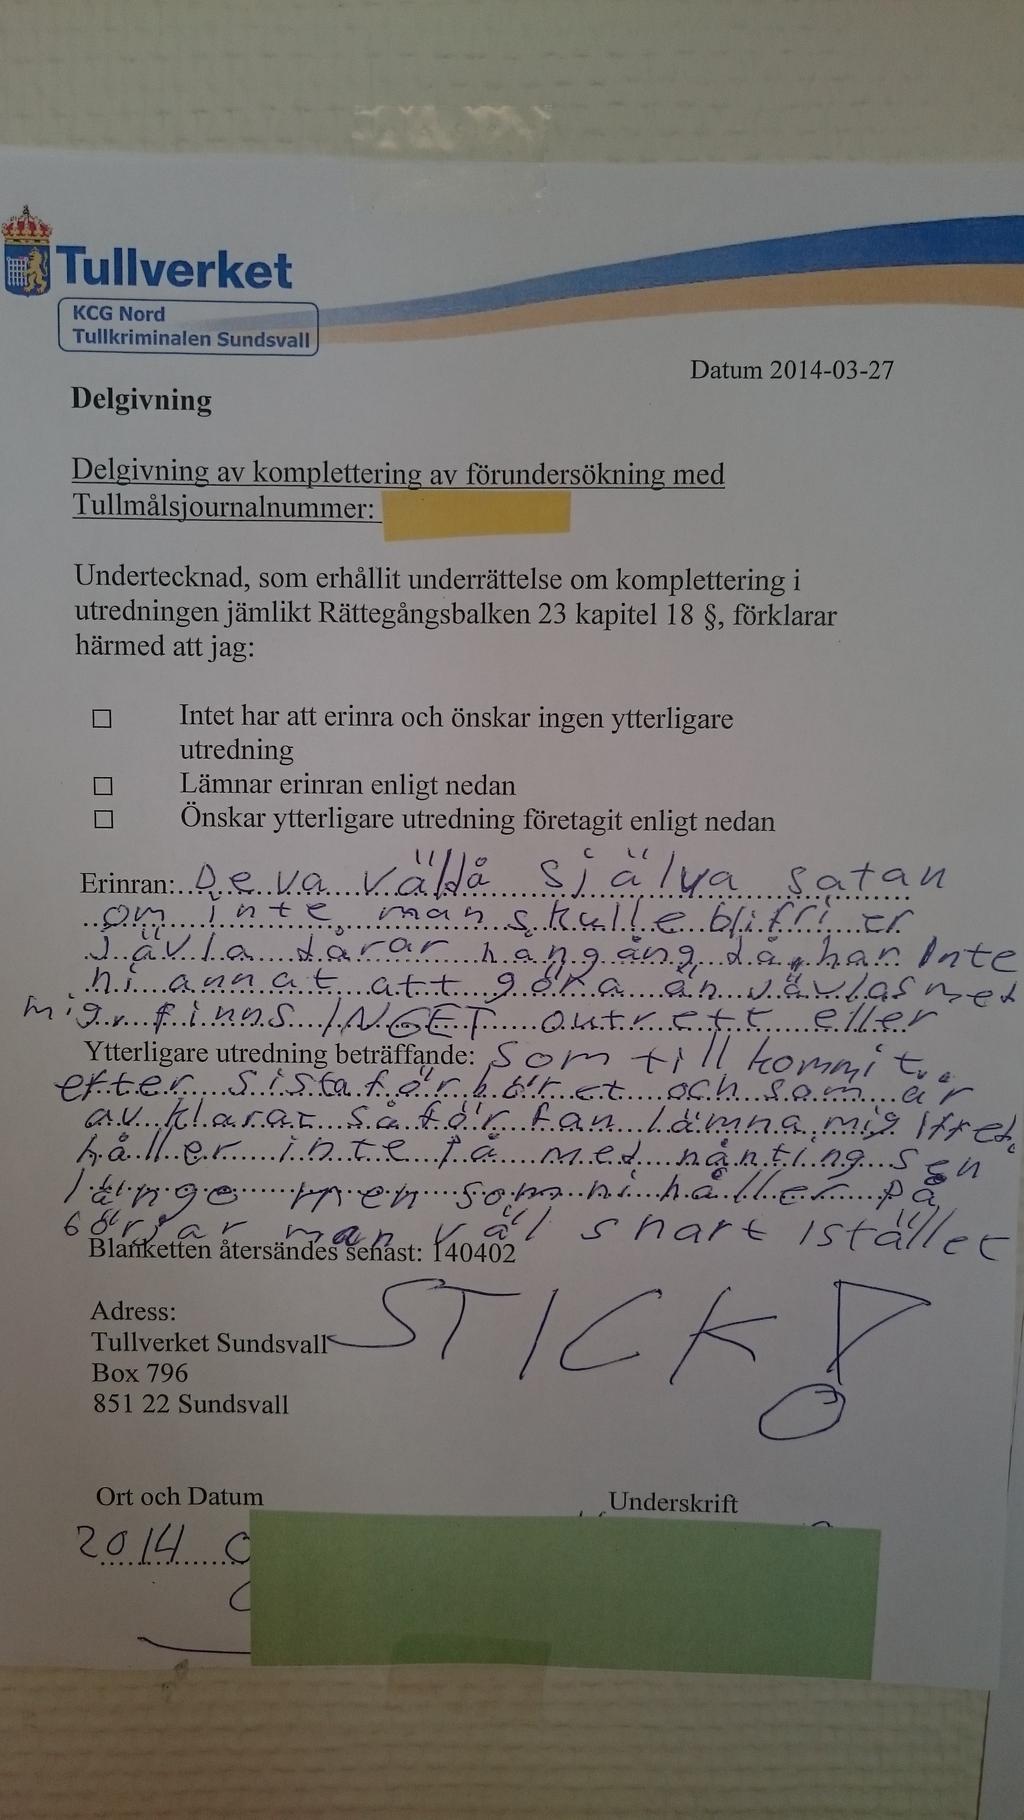 Tullverket
KCG Nord
Tullkriminalen Sundsvall
Datum 2014-03-27
Delgivning
Delgivning av komplettering av förundersökning med
Tullmålsjournalnummer:
Undertecknad, som erhållit underrättelse om komplettering i
utredningen jämlikt Rättegångsbalken 23 kapitel 18 §, förklarar
härmed att jag:
☐ Intet har att erinra och önskar ingen ytterligare
utredning
☐ Lämnar erinran enligt nedan
☐ Önskar ytterligare utredning företagit enligt nedan
Erinran: De va väldå själva satan
om inte man skulle bli fri er
jävla dårar nån gång då, har Inte
ni annat att göra än jävlas med
mig, finns INGET outrett eller
Ytterligare utredning beträffande: som till kommit
efter sista förhöret och som är
av klarat så för fan lämna mig Ifred,
håller inte på med nånting sen
länge men som ni håller på
börjar man väl snart istället
Blanketten återsändes senast: 140402
STICK!
Adress:
Tullverket Sundsvall
Box 796
851 22 Sundsvall
Ort och Datum Underskrift
2014 0